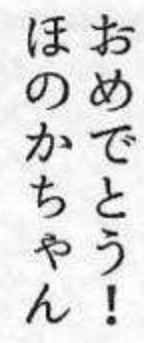 おめでとう！
ほのかちゃん